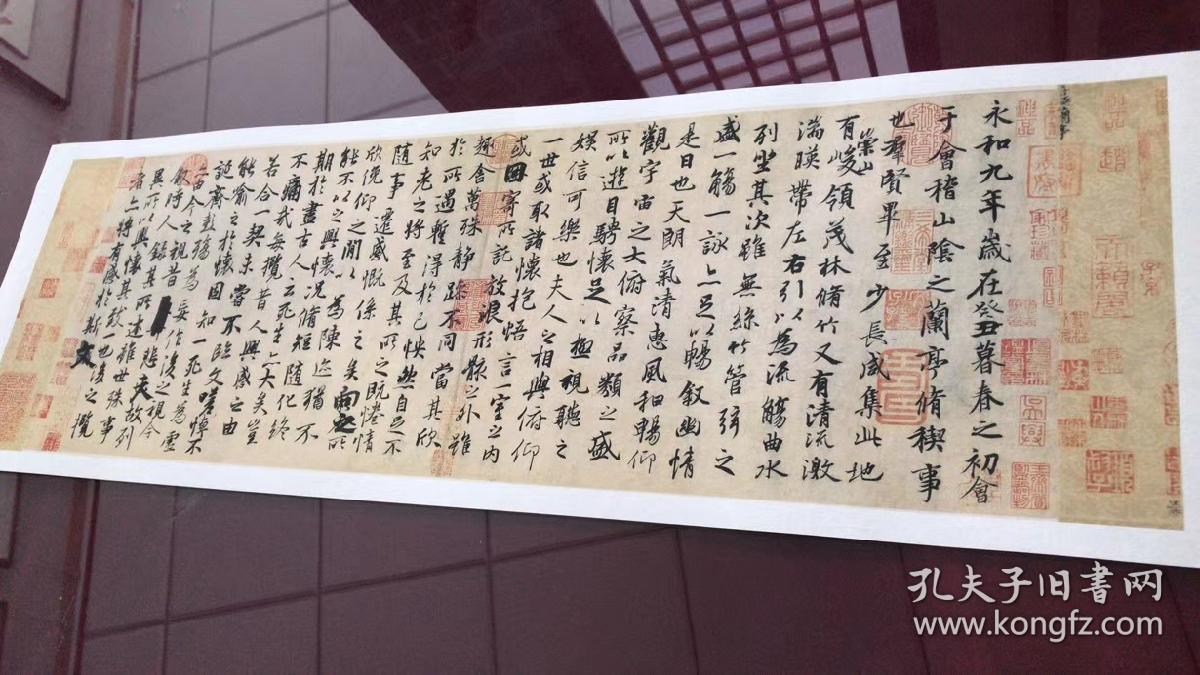 永和九年歲在癸丑暮春之初會
于會稽山陰之蘭亭脩稧事
也羣賢畢至少長咸集此地
有崇山峻領茂林脩竹又有清流激
湍暎帶左右引以為流觴曲水
列坐其次雖無絲竹管弦之
盛一觴一詠亦足以暢敘幽情
是日也天朗氣清惠風和暢仰
觀宇宙之大俯察品類之盛
所以遊目騁懷足以極視聽之
娛信可樂也夫人之相與俯仰
一世或取諸懷抱悟言一室之內
或因寄所託放浪形骸之外雖
趣舍萬殊静躁不同當其欣
於所遇蹔得於己怏然自足不
知老之將至及其所之既惓情
隨事遷感慨係之矣向之所
欣俛仰之間以為陳迹猶不
能不以之興懷況脩短隨化終
期於盡古人云死生亦大矣豈
不痛哉每攬昔人興感之由
若合一契未嘗不臨文嗟悼不
能喻之於懷固知一死生為虛
誕齊彭殤為妄作後之視今
亦由今之視昔悲夫故列
敘時人錄其所述雖世殊事
異所以興懷其致一也後之攬
者亦將有感於斯文
孔夫子旧書网
www.kongfz.com